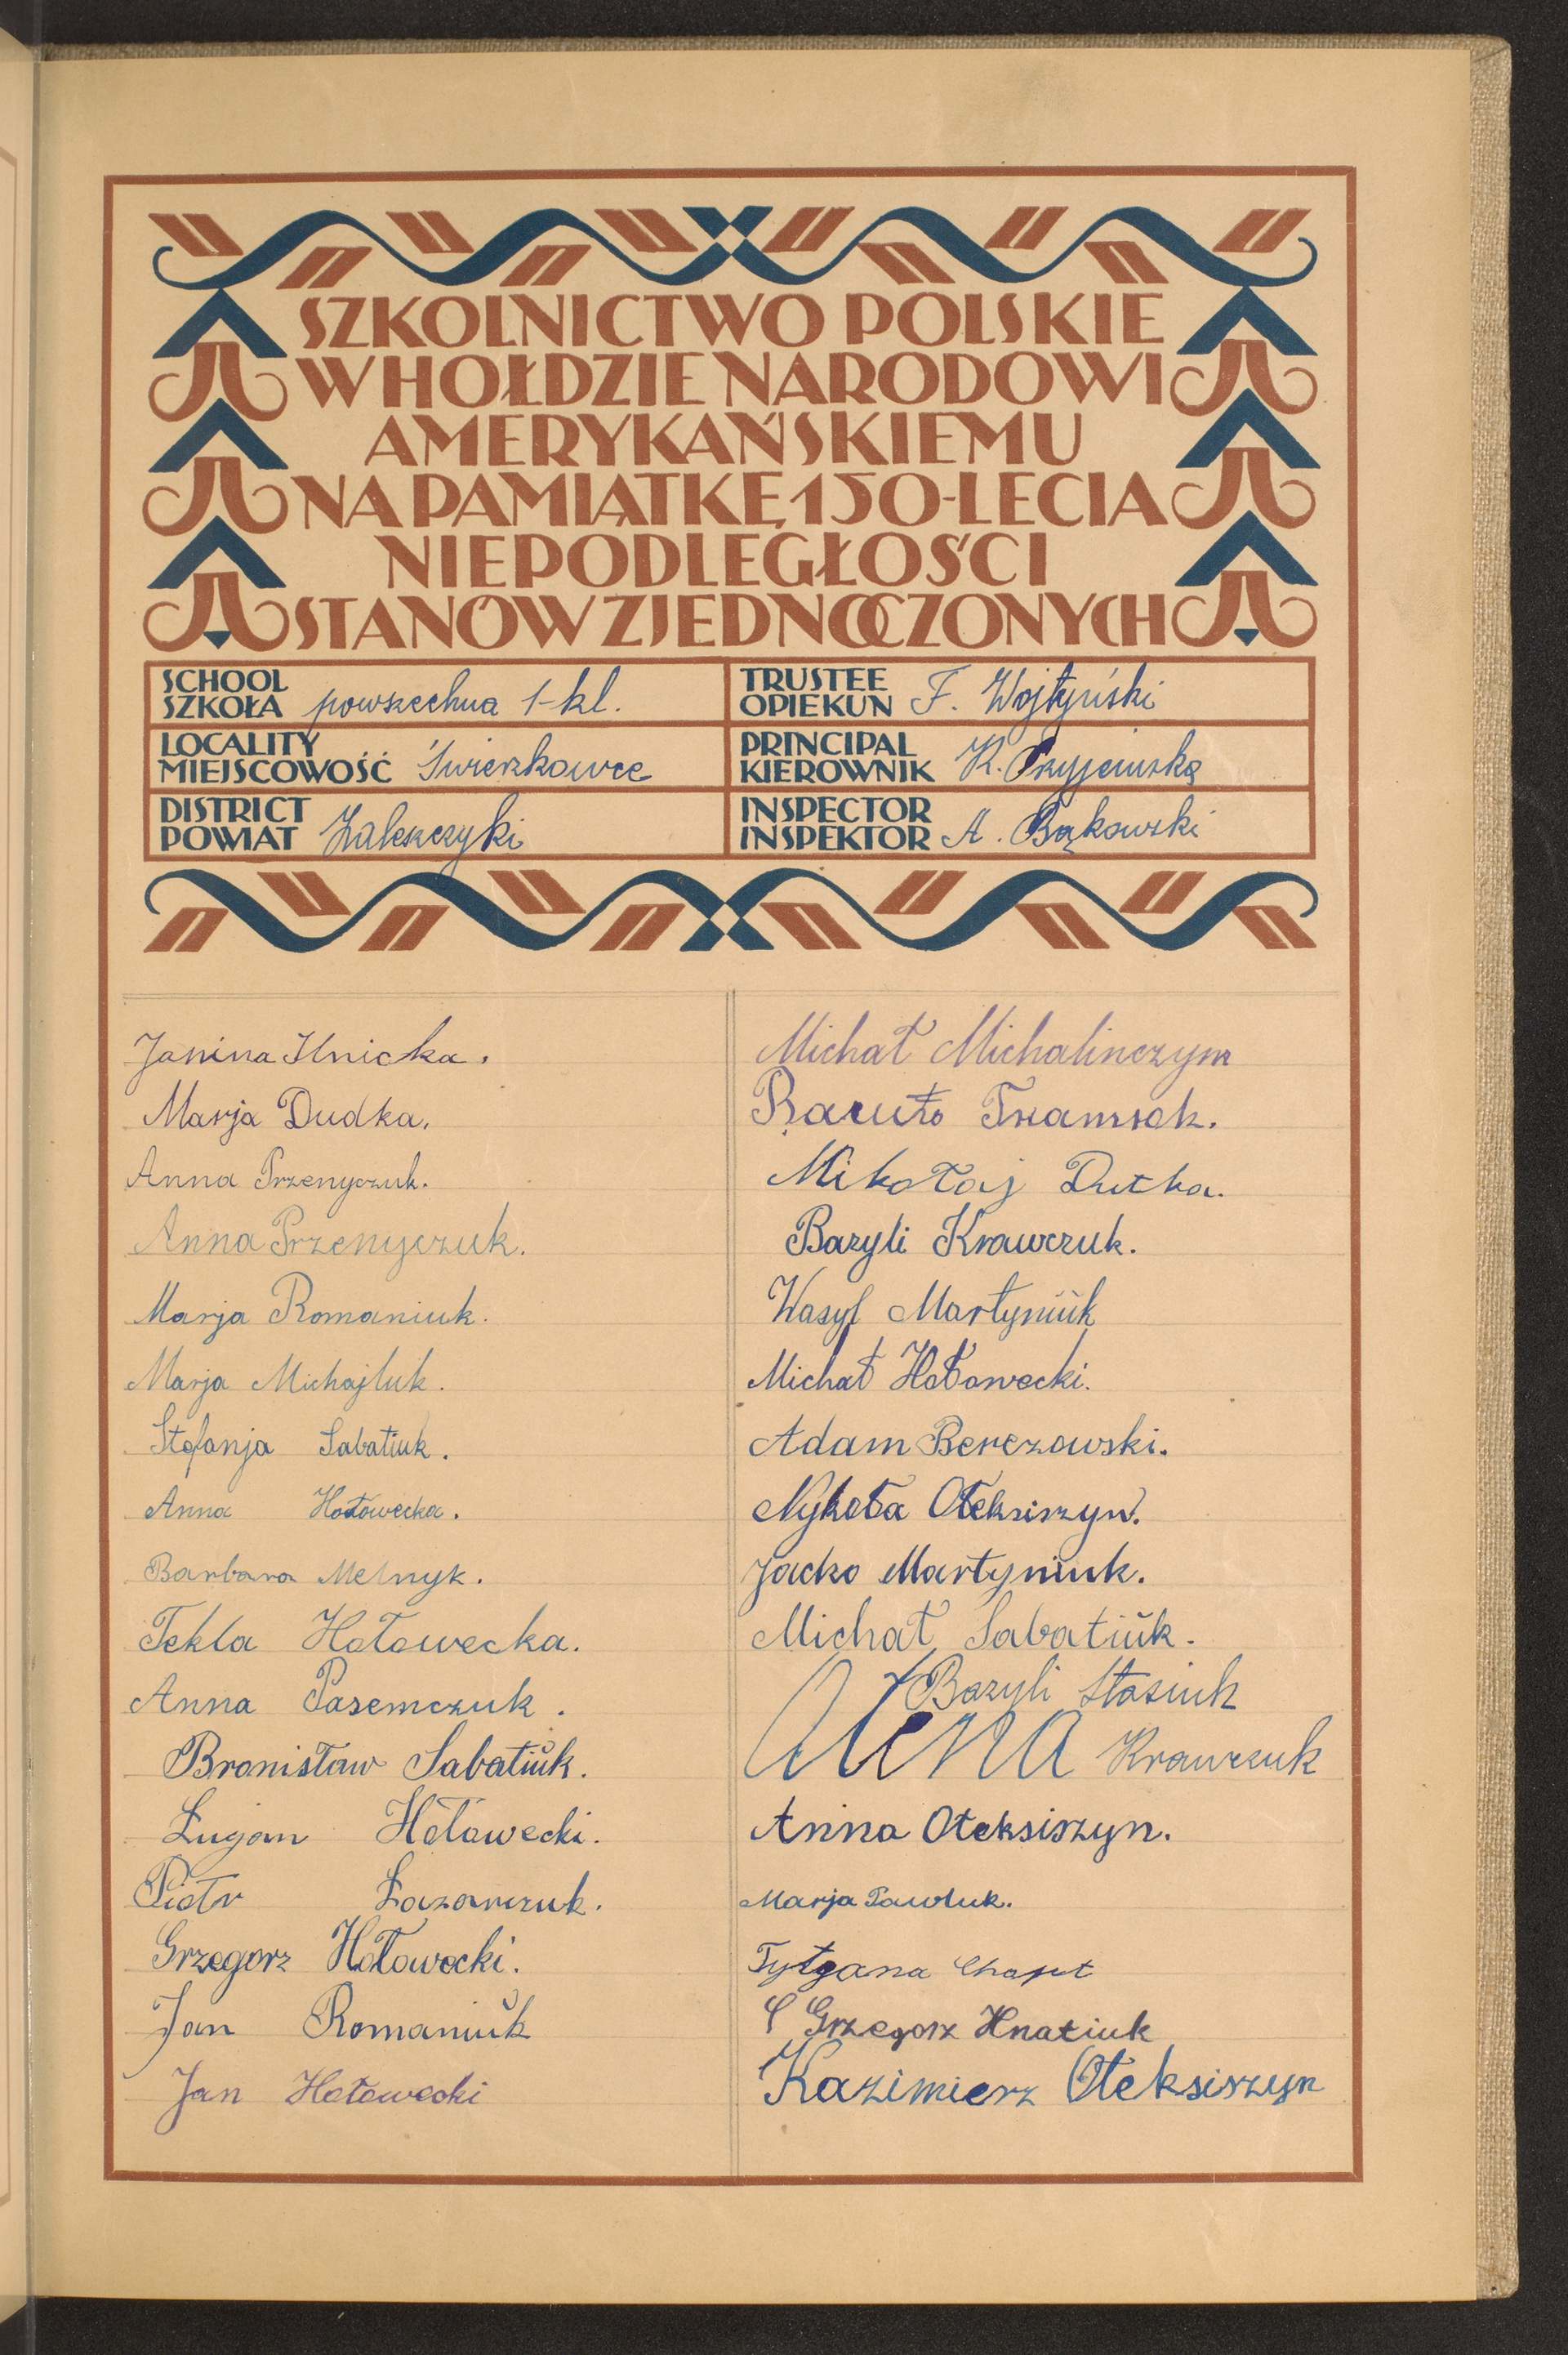 SZKOLNICTWO POLSKIE
W HOŁDZIE NARODOWI
AMERYKAŃSKIEMU
NA PAMIĄTKĘ 150-LECIA
NIEPODLEGŁOŚCI
STANÓW ZJEDNOCZONYCH
SCHOOL
SZKOŁA powszechna 1-kl.
TRUSTEE
OPIEKUN F. Wojtyński
LOCALITY
MIEJSCOWOŚĆ Świerzkowce
PRINCIPAL
KIEROWNIK K.
DISTRICT
POWIAT Zaleszczyki
INSPECTOR
INSPEKTOR A. Bąkowski
Janina Ilnicka.
Marja Dudka.
Anna Przenyczuk.
Anna Przenyczuk.
Marja Romaniuk.
Marja Michajluk.
Stefanja Sabatiuk.
Anna Hołowecka.
Barbara Melnyk.
Tekla Hołowecka.
Anna Pasemczuk.
Bronisław Sabatiŭk.
Hołowecki.
Piotr Łazarczuk.
Grzegorz Hołowecki.
Jan Romaniŭk
Jan Hołowecki
Michał Michalinczym
Mikołaj Dutka.
Bazyli Krawczuk.
Wasyl Martyniŭk
Michał Hołowecki.
Adam Berezowski.
Nykoła Ołeksiszyn.
Jacko Martyniuk.
Michał Sabatiŭk.
Bazyli Stasiuk
Ołena Krawczuk
Anna Ołeksiszyn.
Marja Pawluk.
Grzegorz Hnatiuk
Kazimierz Ołeksiszyn